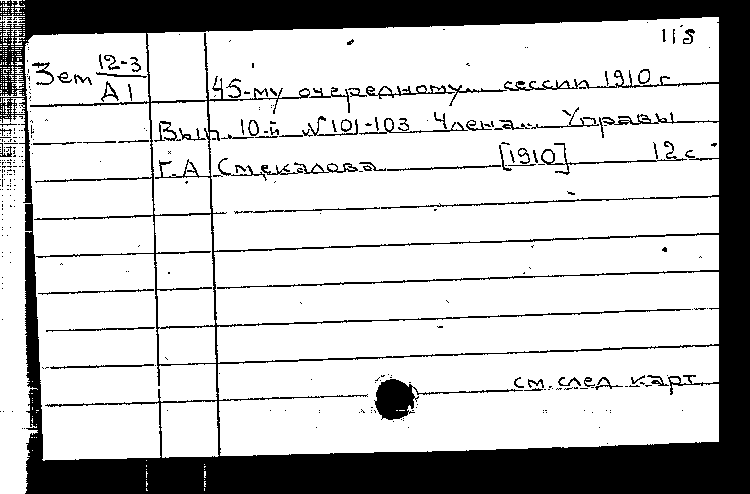 118
Зем 12-3
А1
45-му очередному... сессии 1910 г
Вып. 10-й №101-103 Члена... Управы
Г.А Смекалова [1910] 12 с
см. след карт